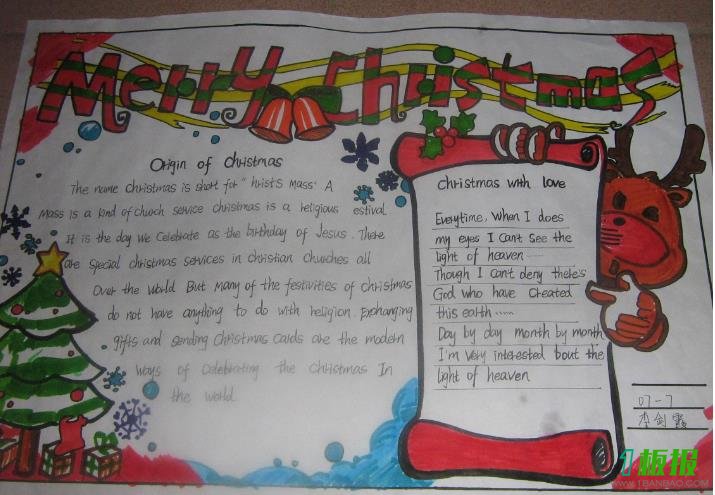 Merry Christmas
Origin of Christmas
The name Christmas is short for "hrists Mass". A
Mass is a kind of church service christmas is a religious estival
It is the day we celebrate as the birthday of Jesus. There
are special christmas services in christian churches all
Over the world But many of the festivities of christmas
do not have anything to do with religion. Exchanging
gifts and sending Christmas cards are the modern
Ways of celebrating the christmas In
the world
Christmas with love
Everytime, When I does
my eyes I can't see the
light of heaven
Though I can't deny there's
God who have created
this earth ......
Day by day month by month
I'm very interested bout the
light of heaven
07-7
李剑霞
1板报
WWW.1BANBAO.COM